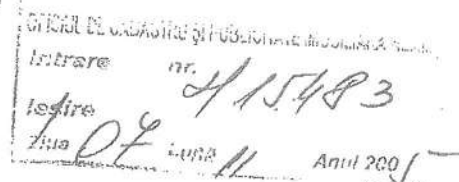 OFICIUL DE CADASTRU ȘI PUBLICITATE IMOBILIARĂ
Intrare nr. 415483
Ieșire
Ziua 07 Luna 11 Anul 2005